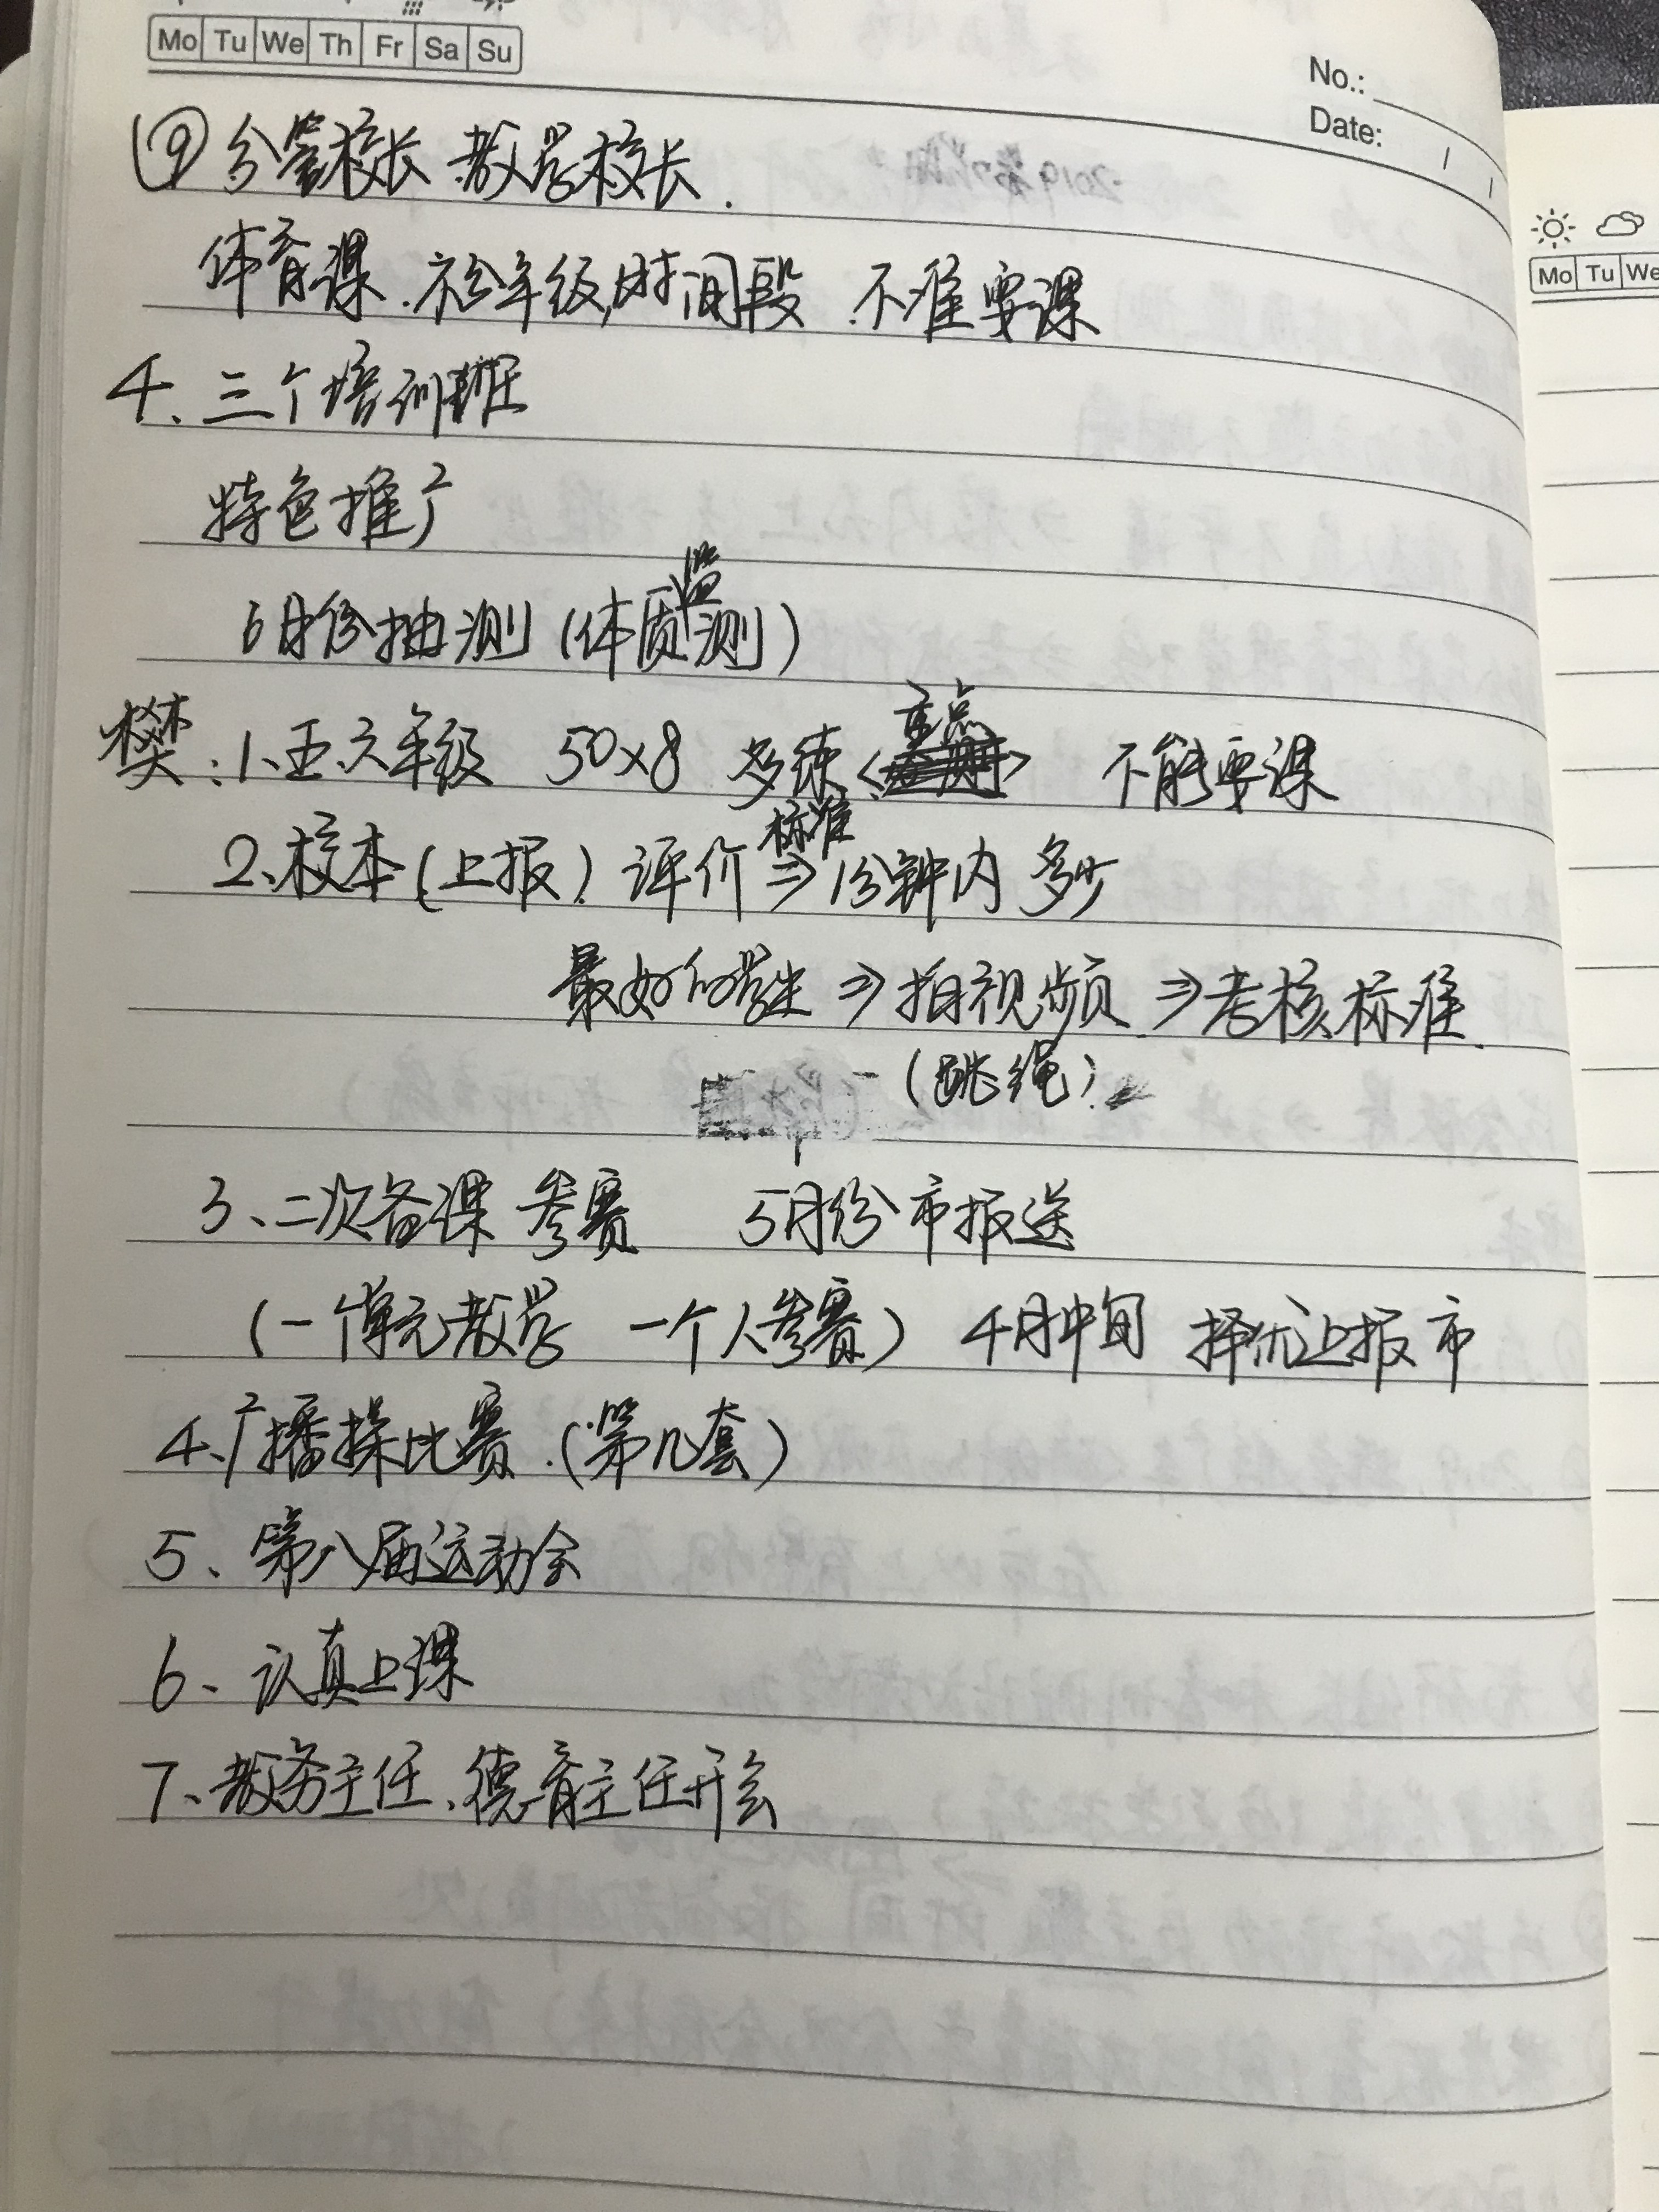 Mo Tu We Th Fr Sa Su
No.:
Date:
⑨分管校长 教学校长.
体育课.不分年级,时间段 .不准要课
4、三个培训班
特色推广
6月份抽测(体质监测)
樊:1、五.六年级 50×8 多练<重点> 不能要课
2、校本(上报) 评价标准⇒1分钟内 多少
最好的学生⇒拍视频⇒考核标准.
(跳绳)
3、二次备课 参赛 5月份市报送
(一个单元教学 一个人参赛) 4月中旬 择优上报市
4、广播操比赛.(第几套)
5、第八届运动会
6、认真上课
7、教务主任、德育主任开会
Mo Tu We